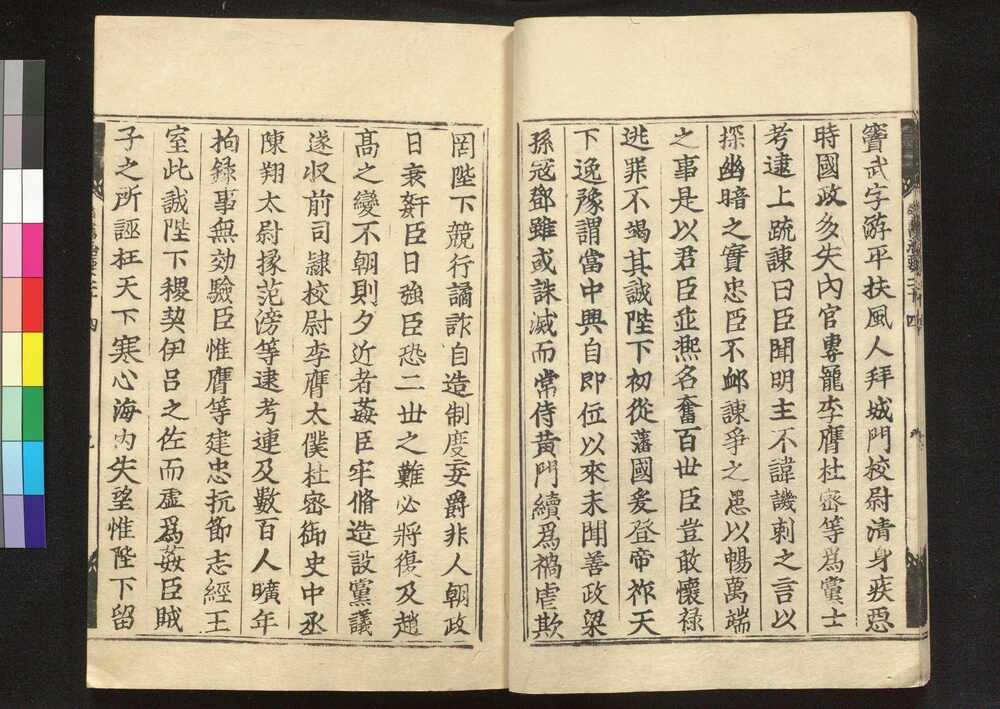 竇武字游平扶風人拜城門校尉清身疾惡
時國政多失内官專寵李膺杜宻等為黨士
考逮上疏諌曰臣聞明主不諱譏刺之言以
探幽暗之實忠臣不衂諌爭之患以暢萬端
之事是以君臣並熈名奮百世臣豈敢懷禄
逃罪不竭其誠陛下初從藩國爰登帝祚天
下逸豫謂當中興自即位以來未聞善政梁
孫冦鄧雖或誅滅而常侍黄門續爲禍虐欺
罔陛下競行譎詐自造制度妄爵非人朝政
日衰姧臣日強臣恐二世之難必將復及趙
髙之變不朝則夕近者姦臣牢脩造設黨議
遂収前司隷校尉李膺太僕杜宻御史中丞
陳翔太尉掾范滂等逮考連及數百人曠年
拘録事無効驗臣惟膺等建忠抗節志經王
室此誠陛下稷契伊吕之佐而虚爲姦臣賊
子之所誣枉天下寒心海内失望惟陛下留